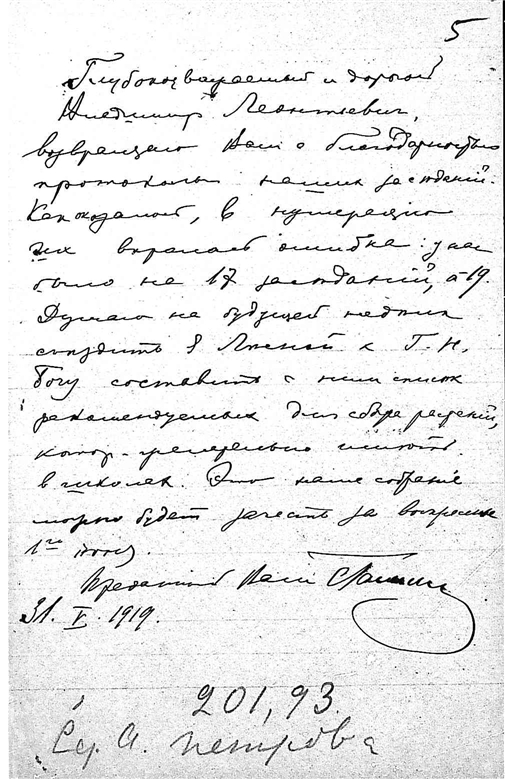 5
Глубокоуважаемый и дорогой
Владимир Леонтьевич,
возвращаю Вам с благодарностью
протоколы наших заседаний.
Как оказалось, в нумерацию
их вкралась ошибка: у нас
было не 17 заседаний, а 19.
Думаю на будущей неделе
съездить в Лесной к Г. Н.
Боту составить с ним список
рекомендуемых для сбора растений,
котор. желательно иметь
в школах. Это наше собрание
можно будет зачесть за воскресенье
1го июня.
Преданный Вам
31. V. 1919.
201,93.
Ед. А. Петрова